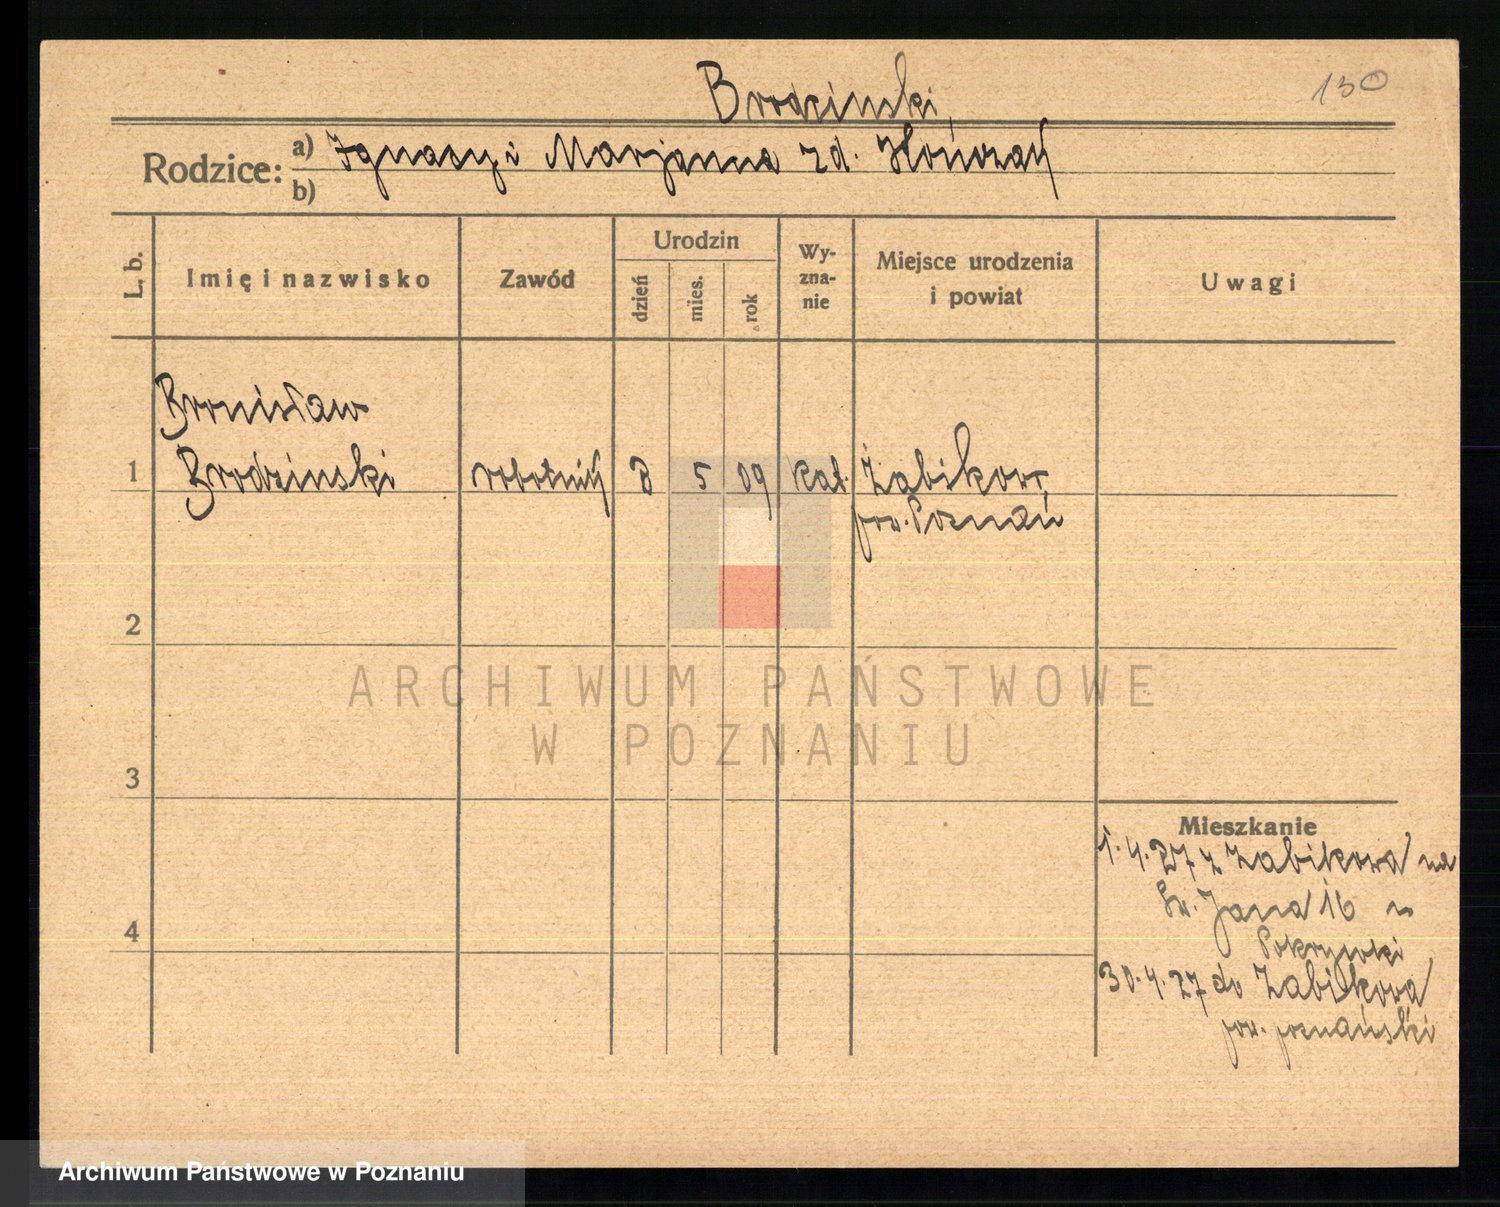 130
Brodzinski
Rodzice: a) Ignacy i Marjanna zd. Słończak
b)
L. b.
Imię i nazwisko
Zawód
Urodzin
dzień
mies.
rok
Wy-
zna-
nie
Miejsce urodzenia
i powiat
Uwagi
Bronisław
1 Brodzinski robotnik 8 5 09 kat. Żabikowo
pow. Poznań
2
ARCHIWUM PAŃSTWOWE
W POZNANIU
3
Mieszkanie
1.4.27 z Żabikowa na
Św. Jana 16 u
4
Pokrywki
30.4.27 do Żabikowa
pow. poznański
Archiwum Państwowe w Poznaniu